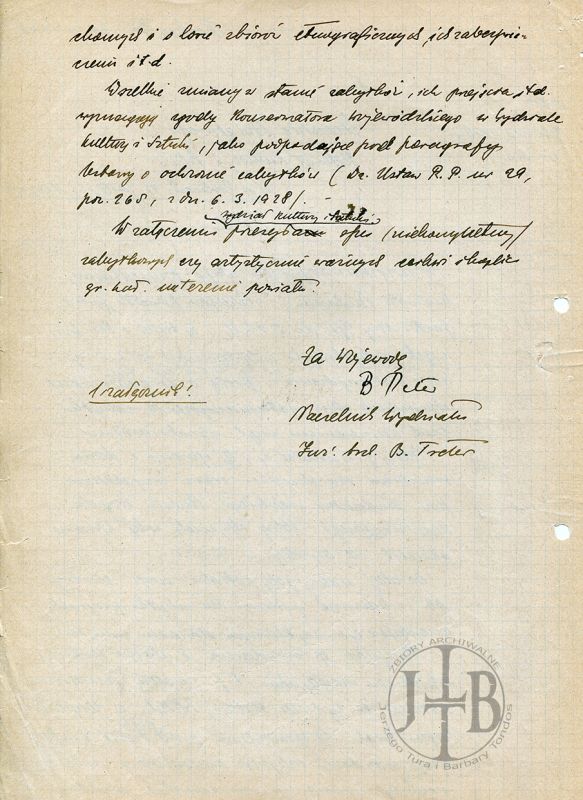 chomych i o losie zbiorów etnograficznych, ich zabezpie-
czeniu itd.
Wszelkie zmiany w stanie zabytków, ich przejścia itd.
wymagają zgody Konserwatora Wojewódzkiego w Wydziale
Kultury i Sztuki, jako podpadające pod paragrafy
Ustawy o ochronie zabytków (Dz. Ustaw R.P. nr 29,
poz. 265, z dn. 6. 3. 1928/. –
Wydział Kultury i Sztuki
W załączeniu przesyła spis /niekompletny/
zabytkowych czy artystycznie ważnych cerkwi i kaplic
gr. kat. na terenie powiatu.
Za Wojewodę
B Treter
1 załącznik!
Naczelnik Wydziału
Inż. arch. B. Treter
ZBIORY ARCHIWALNE
JTB
Jerzego Tura i Barbary Tondos